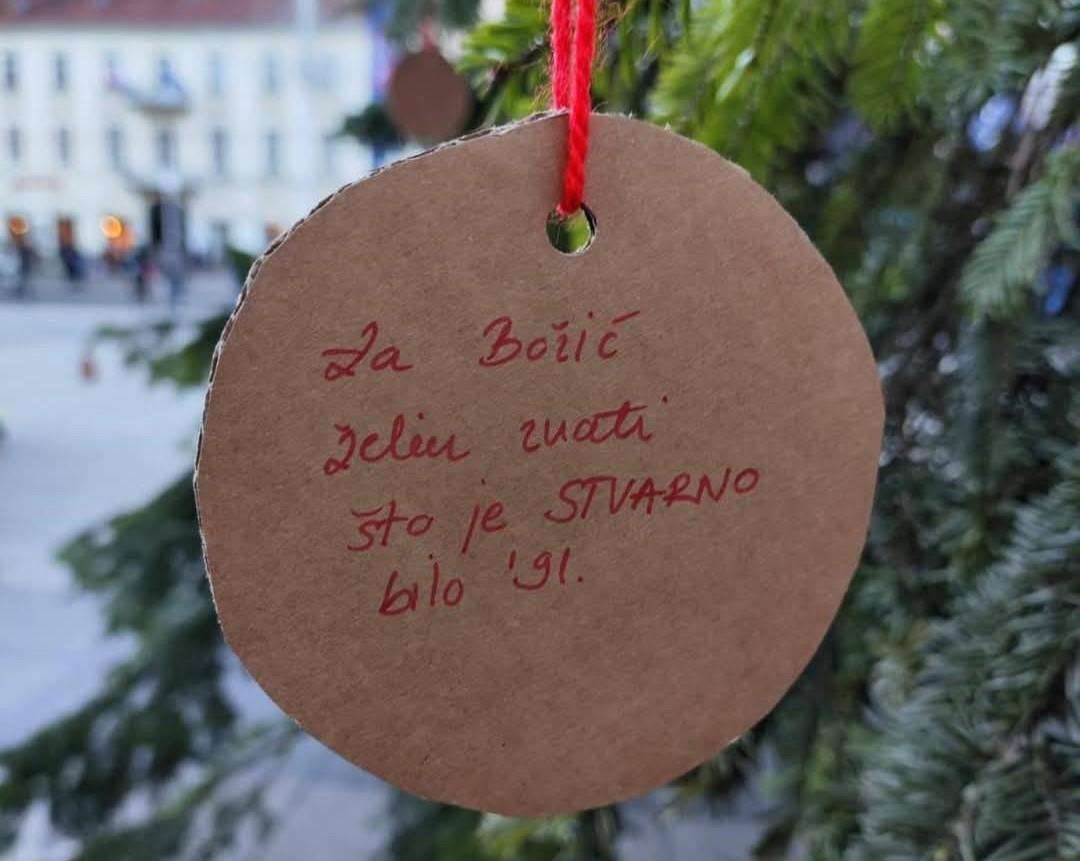 Za Božić
želim znati
što je STVARNO
bilo '91.